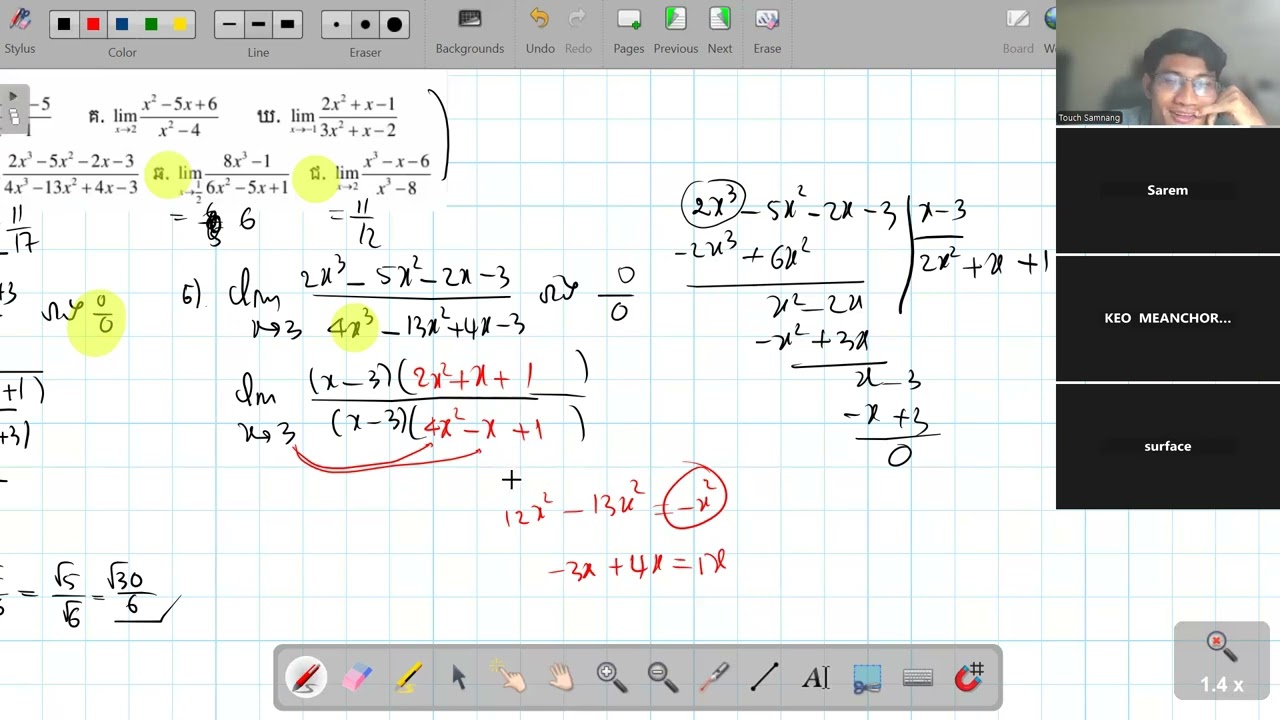 Stylus
Color
Line
Eraser
Backgrounds
Undo
Redo
Pages
Previous
Next
Erase
Board
Touch Samnang
Sarem
KEO MEANCHOR...
surface
គ. lim x→2 (x² − 5x + 6)/(x² − 4)
ឃ. lim x→−1 (2x² + x − 1)/(3x² + x − 2)
(2x³ − 5x² − 2x − 3)/(4x³ − 13x² + 4x − 3)
lim x→1/2 (8x³ − 1)/(6x² − 5x + 1)
ជ. lim x→2 (x³ − x − 6)/(x³ − 8)
11/17
= 6
= 11/12
0/0
+1)
+3)
6) lim x→3 (2x³ − 5x² − 2x − 3)/(4x³ − 13x² + 4x − 3)
0/0
lim x→3 (x − 3)(2x² + x + 1)/(x − 3)(4x² − x + 1)
+
12x² − 13x² = −x²
−3x + 4x = 1x
= √5/√6 = √30/6
2x³ − 5x² − 2x − 3 | x − 3
−2x³ + 6x² | 2x² + x + 1
x² − 2x
−x² + 3x
x − 3
−x + 3
0
1.4 x